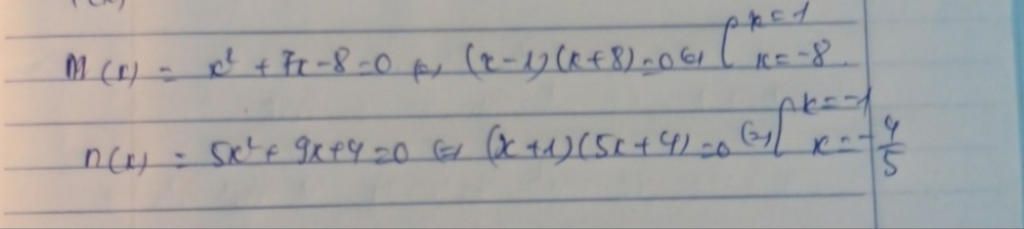 M(x) = x² + 7x - 8 = 0 ⇔ (x - 1)(x + 8) = 0 ⇔ [ x = 1 x = -8.
n(x) = 5x² + 9x + 4 = 0 ⇔ (x + 1)(5x + 4) = 0 ⇔ [ x = -1 x = -4/5